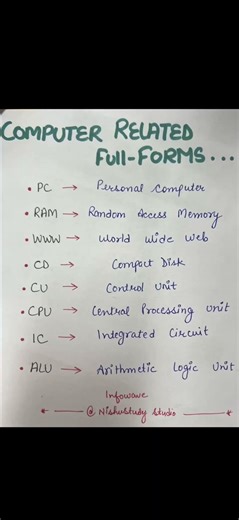 COMPUTER RELATED
FULL-FORMS...
• PC → Personal Computer
• RAM → Random Access Memory
• WWW → World Wide Web
• CD → Compact Disk
• CU → Control Unit
• CPU → Central Processing Unit
• IC → Integrated Circuit
• ALU → Arithmetic Logic Unit
Infowave
@ NishuStudy Studio